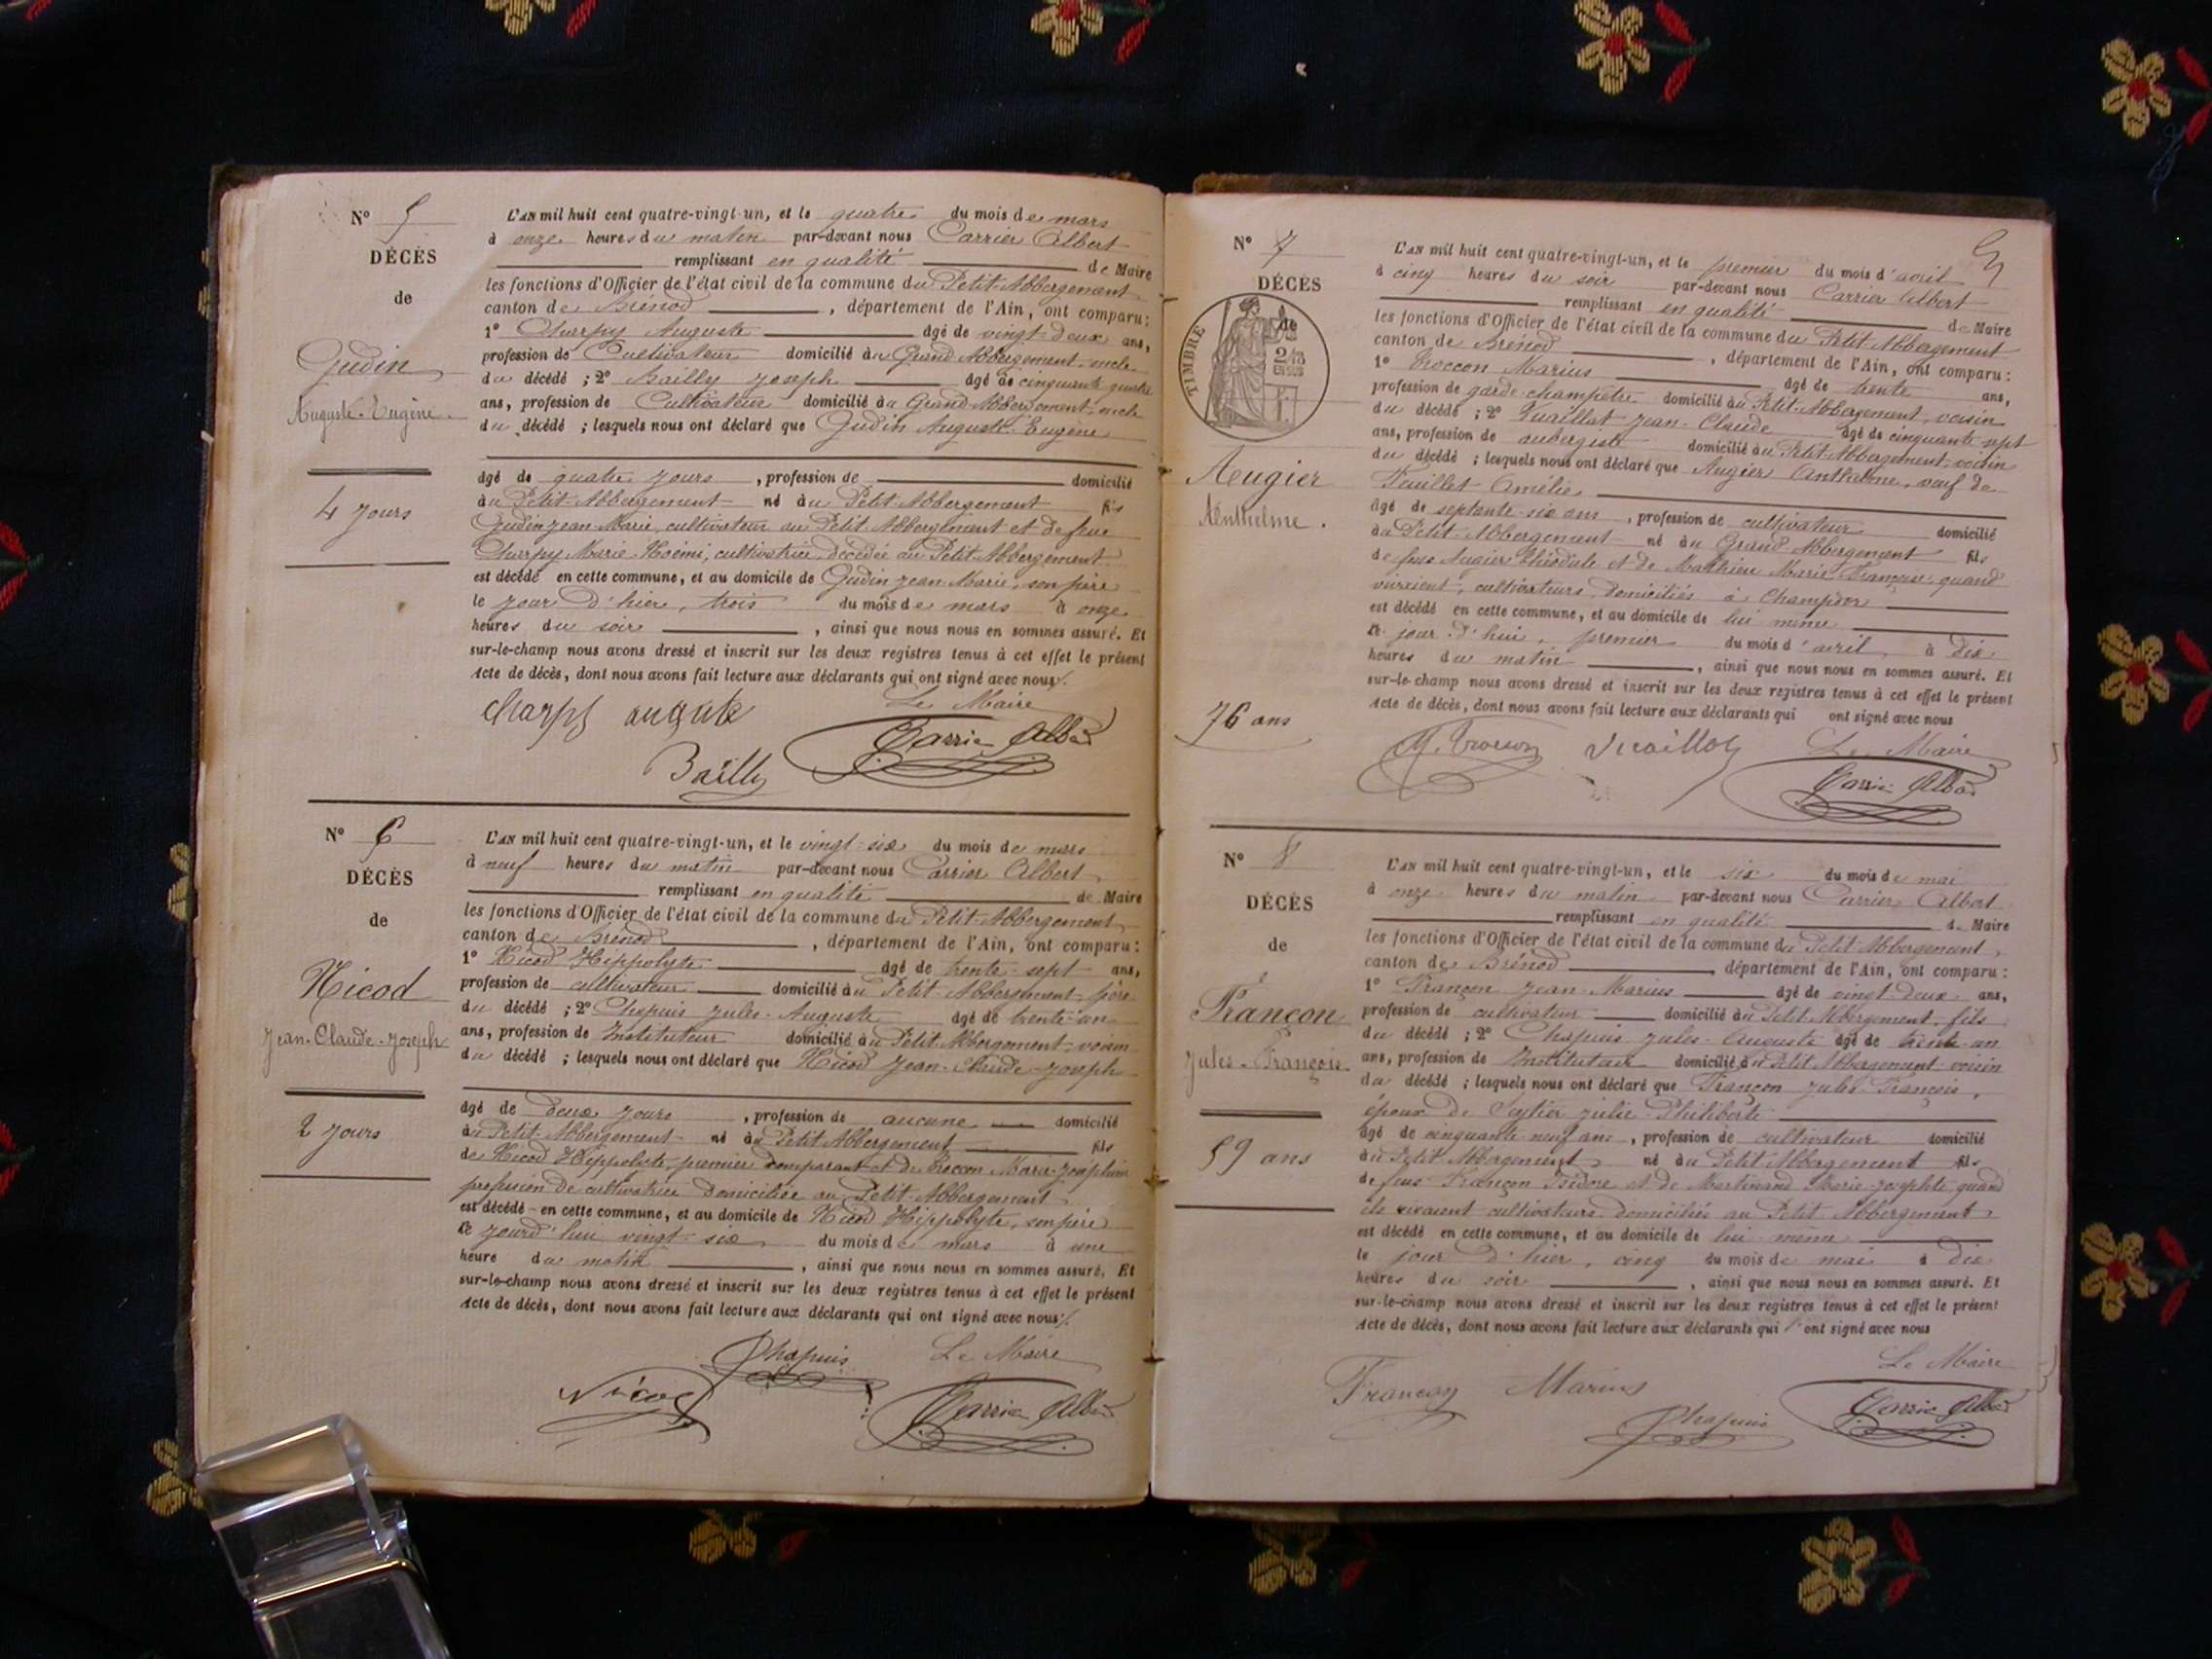 N° 5
DÉCÈS
de
Gudin
Auguste-Eugène.
4 jours
L'AN mil huit cent quatre-vingt-un, et le quatre du mois de mars
à onze heures du matin par-devant nous Carrier Albert
remplissant en qualité de Maire
les fonctions d'Officier de l'état civil de la commune du Petit-Abbergement
canton de Brénod , département de l'Ain, ont comparu:
1° Charpy Auguste âgé de vingt-deux ans,
profession de Cultivateur domicilié au Grand-Abbergement oncle
du décédé ; 2° Bailly Joseph âgé de cinquante quatre
ans, profession de Cultivateur domicilié au Grand-Abbergement oncle
du décédé ; lesquels nous ont déclaré que Gudin Auguste-Eugène
âgé de quatre jours , profession de domicilié
au Petit-Abbergement né au Petit-Abbergement fils
Gudin Jean-Marie, cultivateur au Petit-Abbergement et de feue
Charpy Marie Noémi, cultivatrice décédée au Petit-Abbergement
est décédé en cette commune, et au domicile de Gudin Jean-Marie, son père
le jour d'hier, trois du mois de mars à onze
heures du soir , ainsi que nous nous en sommes assuré. Et
sur-le-champ nous avons dressé et inscrit sur les deux registres tenus à cet effet le présent
Acte de décès, dont nous avons fait lecture aux déclarants qui ont signé avec nous/.
Le Maire
charpy auguste
Carrier Albert
Bailly
N° 6
DÉCÈS
de
Nicod
Jean-Claude-Joseph
2 jours
L'AN mil huit cent quatre-vingt-un, et le vingt-six du mois de mars
à neuf heures du matin par-devant nous Carrier Albert
remplissant en qualité de Maire
les fonctions d'Officier de l'état civil de la commune du Petit-Abbergement
canton de Brénod , département de l'Ain, ont comparu:
1° Nicod Hippolyte âgé de trente-sept ans,
profession de cultivateur domicilié au Petit-Abbergement père
du décédé ; 2° Chapuis Jules-Auguste âgé de trente-un
ans, profession de Instituteur domicilié au Petit-Abbergement, voisin
du décédé ; lesquels nous ont déclaré que Nicod Jean-Claude-Joseph
âgé de deux jours , profession de aucune domicilié
au Petit-Abbergement né au Petit Abbergement fils
de Nicod Hippolyte, premier comparant et de Marie-Joséphine
profession de cultivatrice domiciliée au Petit-Abbergement
est décédé en cette commune, et au domicile de Nicod Hippolyte, son père
le jourd'hui vingt-six du mois de mars à une
heure du matin , ainsi que nous nous en sommes assuré. Et
sur-le-champ nous avons dressé et inscrit sur les deux registres tenus à cet effet le présent
Acte de décès, dont nous avons fait lecture aux déclarants qui ont signé avec nous/.
Chapuis Le Maire
Nicod Carrier Albert
N° 7
DÉCÈS
de
TIMBRE
2/10
EN SUS
Augier
Anthelme.
76 ans
L'AN mil huit cent quatre-vingt-un, et le premier du mois d'avril
à cinq heures du soir par-devant nous Carrier Albert
remplissant en qualité de Maire
les fonctions d'Officier de l'état civil de la commune du Petit-Abbergement
canton de Brénod , département de l'Ain, ont comparu:
1° Troccon Marius âgé de trente ans,
profession de garde-champêtre domicilié au Petit-Abbergement, voisin
du décédé ; 2° Vuaillat Jean-Claude âgé de cinquante-sept
ans, profession de aubergiste domicilié au Petit-Abbergement, voisin
du décédé ; lesquels nous ont déclaré que Augier Anthelme, veuf de
Feuillet Amélie
âgé de septante-six ans , profession de cultivateur domicilié
au Petit-Abbergement né au Grand Abbergement fils
de feus Augier Théodule et de Mathieu Marie Françoise, quand
vivaient, cultivateurs, domiciliés à Champdor
est décédé en cette commune, et au domicile de lui même
le jour d'hui, premier du mois d'avril à dix
heures du matin , ainsi que nous nous en sommes assuré. Et
sur-le-champ nous avons dressé et inscrit sur les deux registres tenus à cet effet le présent
Acte de décès, dont nous avons fait lecture aux déclarants qui ont signé avec nous
Le Maire
Carrier Albert
N° 8
DÉCÈS
de
Françon
Jules-François
59 ans
L'AN mil huit cent quatre-vingt-un, et le six du mois de mai
à onze heures du matin par-devant nous Carrier Albert
remplissant en qualité de Maire
les fonctions d'Officier de l'état civil de la commune du Petit-Abbergement,
canton de Brénod , département de l'Ain, ont comparu:
1° Françon Jean-Marius âgé de vingt-deux ans,
profession de cultivateur domicilié au Petit Abbergement, fils
du décédé ; 2° Chapuis Jules-Auguste âgé de trente-un
ans, profession de Instituteur domicilié au Petit Abbergement voisin
du décédé ; lesquels nous ont déclaré que Françon Jules-François,
époux de Julie Philiberte
âgé de cinquante-neuf ans , profession de cultivateur domicilié
au Petit-Abbergement né au Petit Abbergement fils
de feus Françon Isidore et de Martinand Marie-Josephte, quand
ils vivaient cultivateurs domiciliés au Petit-Abbergement
est décédé en cette commune, et au domicile de lui-même
le jour d'hier, cinq du mois de mai à dix
heures du soir , ainsi que nous nous en sommes assuré. Et
sur-le-champ nous avons dressé et inscrit sur les deux registres tenus à cet effet le présent
Acte de décès, dont nous avons fait lecture aux déclarants qui ont signé avec nous
Le Maire
Françon Marius
Carrier Albert
Chapuis